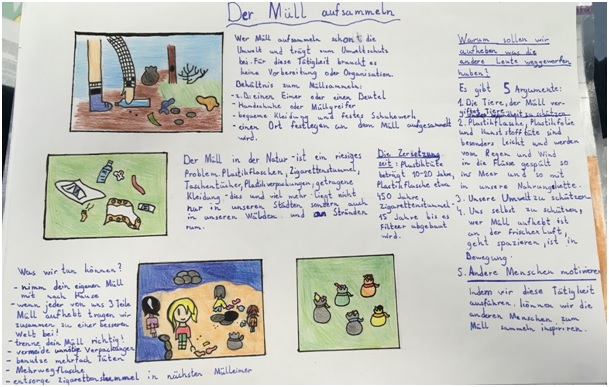 Der Müll aufsammeln
Wer Müll aufsammeln schont die
Umwelt und trägt zum Umweltschutz
bei. Für diese Tätigkeit braucht es
keine Vorbereitung oder Organisation.
Behältnis zum Müllsammeln:
- z.B. einen Eimer oder einen Beutel
- Handschuhe oder Müllgreifer
- bequeme Kleidung und festes Schuhwerk
- einen Ort festlegen an dem Müll aufgesammelt
wird.
Der Müll in der Natur - ist ein riesiges
Problem. Plastikflaschen, Zigarettenstummel,
Taschentücher, Plastikverpackungen, getragene
Kleidung - das und viel mehr liegt nicht
nur in unseren Städten sondern auch
in unseren Wäldern und an Stränden
rum.
Die Zersetzung
zeit: Plastiktüte
beträgt 10-20 Jahre,
Plastikflasche etwa
450 Jahre,
Zigarettenstummel -
15 Jahre bis es
Filter abgebaut
wird.
Warum sollen wir
aufheben was die
andere Leute weggeworfen
haben?
Es gibt 5 Argumente:
1. Die Tiere, der Müll ver-
giftet Tiere
2. Plastikflasche, Plastikfolie
und Kunststofftüte sind
besonders leicht und werden
vom Regen und Wind
in die Flüsse gespült so
ins Meer und so mit
in unsere Nahrungskette.
3. Unsere Umwelt zu schützen
4. Uns selbst zu schützen,
wer Müll aufhebt ist
an der frischen Luft,
geht spazieren, ist in
Bewegung.
5. Andere Menschen motivieren
Indem wir diese Tätigkeit
ausführen, können wir die
anderen Menschen zum
Müll sammeln inspirieren.
Was wir tun können?
- nimm dein eigenen Müll
mit nach Hause
- wenn jeder von uns 3 Teile
Müll aufhebt tragen wir
zusammen zu einer besseren
Welt bei!
- trenne dein Müll richtig!
- vermeide unnötige Verpackungen
- benutze mehrfach Tüten
- Mehrwegflasche
- entsorge Zigarettenstummel in nächsten Mülleimer